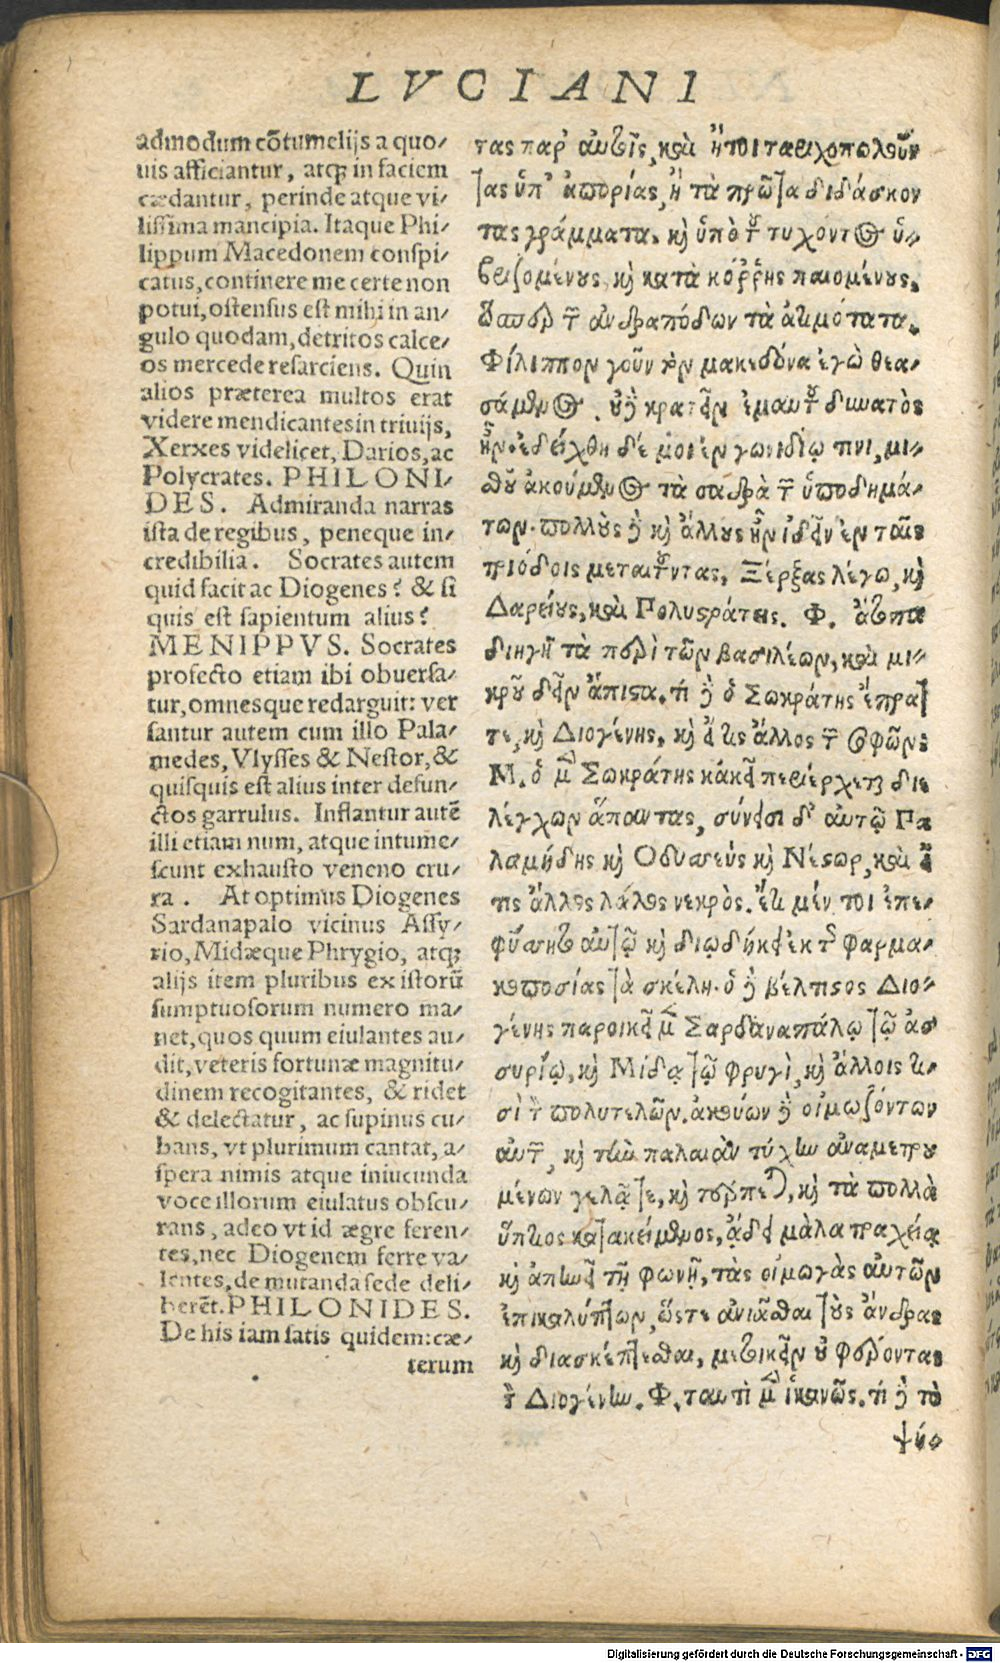 LVCIANI
admodum cõtumelijs a quo/
uis afficiantur, atqʒ in faciem
cædantur, perinde atque vi/
lissima mancipia. Itaque Phi/
lippum Macedonem conspi/
catus, continere me certe non
potui, ostensus est mihi in an/
gulo quodam, detritos calce/
os mercede resarciens. Quin
alios præterea multos erat
videre mendicantes in triuijs,
Xerxes videlicet, Darios, ac
Polycrates. PHILONI/
DES. Admiranda narras
ista de regibus, peneque in/
credibilia. Socrates autem
quid facit ac Diogenes? & si
quis est sapientum alius?
MENIPPVS. Socrates
profecto etiam ibi obuersa/
tur, omnesque redarguit: ver
santur autem cum illo Pala/
medes, Vlysses & Nestor, &
quisquis est alius inter defun/
ctos garrulus. Inflantur autẽ
illi etiam num, atque intume/
scunt exhausto veneno cru/
ra. At optimus Diogenes
Sardanapalo vicinus Assy/
rio, Midæque Phrygio, atqʒ
alijs item pluribus ex istorũ
sumptuosorum numero ma/
net, quos quum eiulantes au/
dit, veteris fortunæ magnitu/
dinem recogitantes, & ridet
& delectatur, ac supinus cu/
bans, vt plurimum cantat, a/
spera nimis atque iniucunda
voce illorum eiulatus obscu/
rans, adeo vt id ægre feren/
tes, nec Diogenem ferre va/
lentes, de mutanda sede deli/
berẽt. PHILONIDES.
De his iam satis quidem: cæ/
terum
τας παρ' αὐτοῖς, καὶ ἤτοι ταριχοπωλοῦν
τας ὑπ' ἀπορίας, ἢ τὰ πρῶτα διδάσκον
τας γράμματα. καὶ ὑπὸ τοῦ τυχόντος ὑ-
βριζομένους, καὶ κατὰ κόῤῥης παιομένους,
ὥσπερ τῶν ἀνδραπόδων τὰ ἀτιμότατα.
Φίλιππον γοῦν τὸν μακεδόνα ἐγὼ θεα-
σάμενος, οὐδὲ κρατεῖν ἐμαυτοῦ δυνατὸς
ἦν. ἐδείχθη δέ μοι ἐν γωνιδίῳ τινι, μι-
σθοῦ ἀκούμενος τὰ σαθρὰ τῶν ὑποδημά-
των. πολλοὺς δὲ καὶ ἄλλους ἦν ἰδεῖν ἐν ταῖς
τριόδοις μεταιτοῦντας, Ξέρξας λέγω, καὶ
Δαρείους, καὶ Πολυκράτεις. Φ. ἄτοπα
διηγῇ τὰ περὶ τῶν βασιλέων, καὶ μι-
κροῦ δεῖν ἄπιστα. τί δὲ ὁ Σωκράτης ἔπρατ
τε, καὶ Διογένης, καὶ εἴ τις ἄλλος τῶν σοφῶν;
Μ. ὁ μὲν Σωκράτης κἀκεῖ περιέρχεται διε
λέγχων ἅπαντας, σύνεισι δ' αὐτῷ Πα
λαμήδης καὶ Ὀδυσσεὺς καὶ Νέστωρ, καὶ εἴ
τις ἄλλος λάλος νεκρὸς. ἔτι μέν τοι ἐπε-
φύσητο αὐτῷ καὶ διῳδήκει ἐκ τῆς φαρμα-
κοποσίας τὰ σκέλη. ὁ δὲ βέλτιστος Διο-
γένης παροικεῖ μὲν Σαρδαναπάλῳ τῷ ἀσ
συρίῳ, καὶ Μίδᾳ τῷ φρυγὶ, καὶ ἄλλοις τι-
σὶ τῶν πολυτελῶν. ἀκούων δὲ οἰμωζόντων
αὐτῶν, καὶ τὴν παλαιὰν τύχην ἀναμετρου
μένων γελᾷ τε, καὶ τέρπεται, καὶ τὰ πολλὰ
ὕπτιος κατακείμενος, ᾄδει μάλα τραχείᾳ
καὶ ἀπηνεῖ τῇ φωνῇ, τὰς οἰμωγὰς αὐτῶν
ἐπικαλύπτων, ὥστε ἀνιᾶσθαι τοὺς ἄνδρας
καὶ διασκέπτεσθαι, μετοικεῖν οὐ φέροντας
τὸν Διογένην. Φ. ταυτὶ μὲν ἱκανῶς. τί δὲ τὸ
ψή-
Digitalisierung gefördert durch die Deutsche Forschungsgemeinschaft - DFG